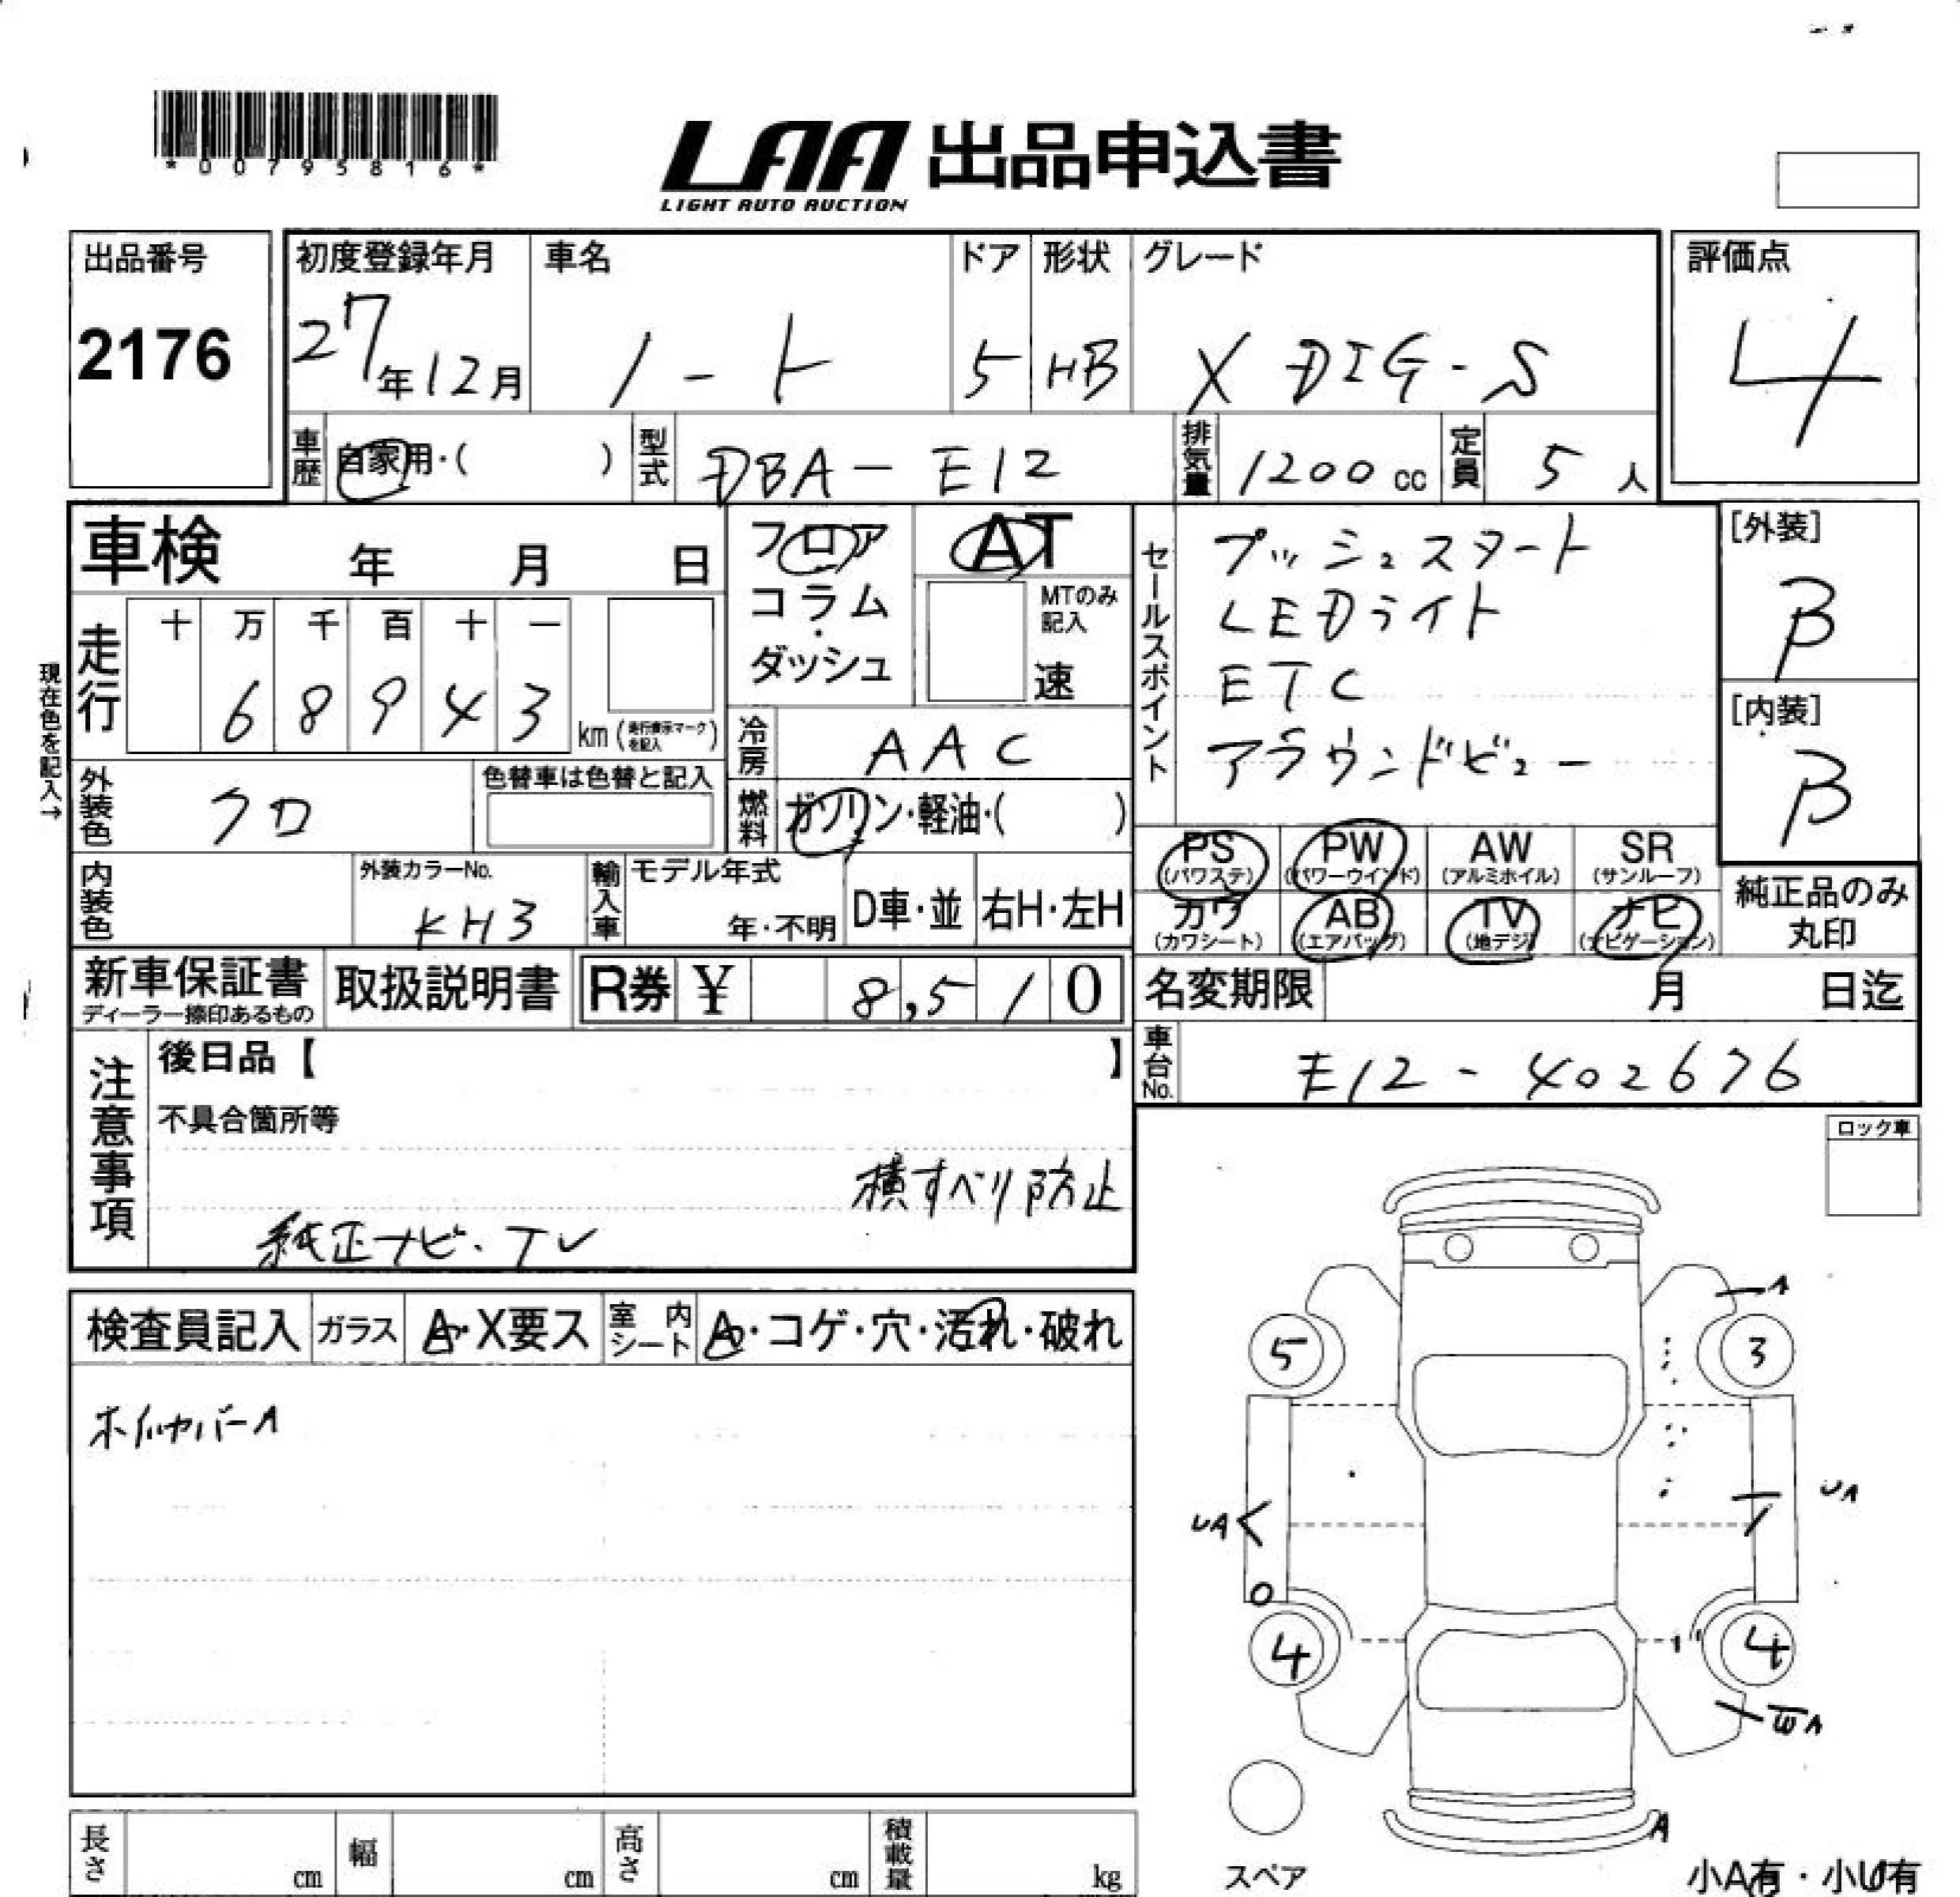 *00795816*
LAA 出品申込書
LIGHT AUTO AUCTION
出品番号
2176
初度登録年月
27年12月
車名
ノート
ドア
5
形状
HB
グレード
X DIG-S
評価点
4
車歴
自家用・( )
型式
DBA-E12
排気量
1200 cc
定員
5 人
車検 年 月 日
走行
十 万 千 百 十 一
6 8 9 4 3
km (走行表示マークを記入)
現在色を記入→
フロア
コラム
・
ダッシュ
AT
MTのみ
記入
速
冷房
AAC
燃料
ガソリン・軽油・( )
外装色
クロ
色替車は色替と記入
内装色
外装カラーNo.
KH3
輸入車
モデル年式
年・不明
D車・並
右H・左H
セールスポイント
プッシュスタート
LEDライト
ETC
アラウンドビュー
[外装]
B
[内装]
B
PS
(パワステ)
PW
(パワーウインド)
AW
(アルミホイル)
SR
(サンルーフ)
カワ
(カワシート)
AB
(エアバッグ)
TV
(地デジ)
ナビ
(ナビゲーション)
純正品のみ
丸印
新車保証書
ディーラー捺印あるもの
取扱説明書
R券 ¥ 8,510
名変期限 月 日迄
車台No.
E12-402676
注意事項
後日品【 】
不具合箇所等
横すべり防止
純正ナビ・TV
ロック車
検査員記入
ガラス
A・X要ス
室内シート
A・コゲ・穴・汚れ・破れ
ホイルカバーA
A
5
3
UA
UA
4
4
A
スペア
小A有・小U有
長さ cm
幅 cm
高さ cm
積載量 kg